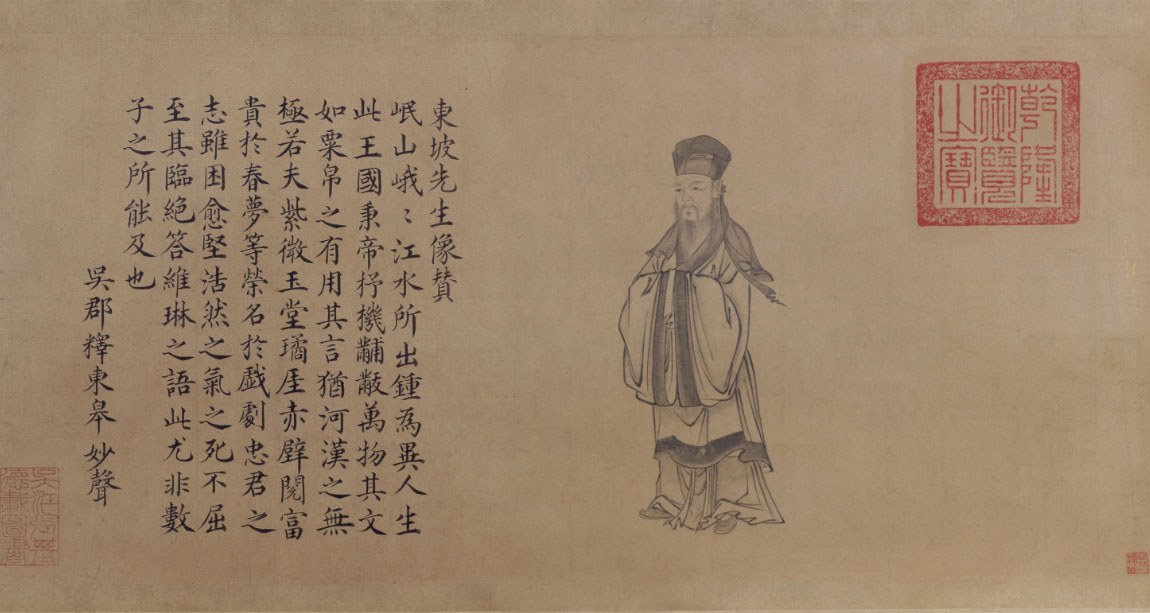 乾隆
御覽
之寶
東坡先生像賛
岷山峨〻江水所出鍾為異人生
此王國秉帝杼機黼黻萬物其文
如粟帛之有用其言猶河漢之無
極若夫紫微玉堂璚厓赤壁閱富
貴於春夢等榮名於戯劇忠君之
志雖困愈堅浩然之氣之死不屈
至其臨絶答維琳之語此尤非數
子之所能及也
吳郡釋東皋妙聲